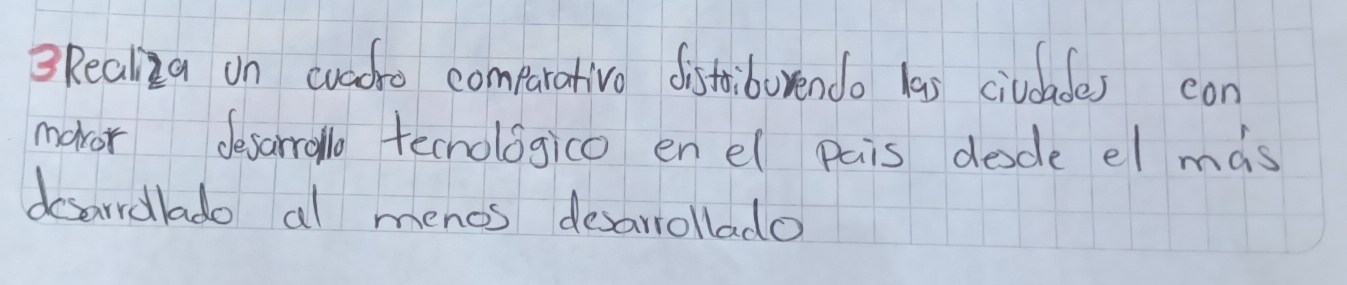 3 Realiza un cuadro comparativo distribuyendo las ciudades con
mayor desarrollo tecnológico en el pais desde el más
desarrollado al menos desarrollado